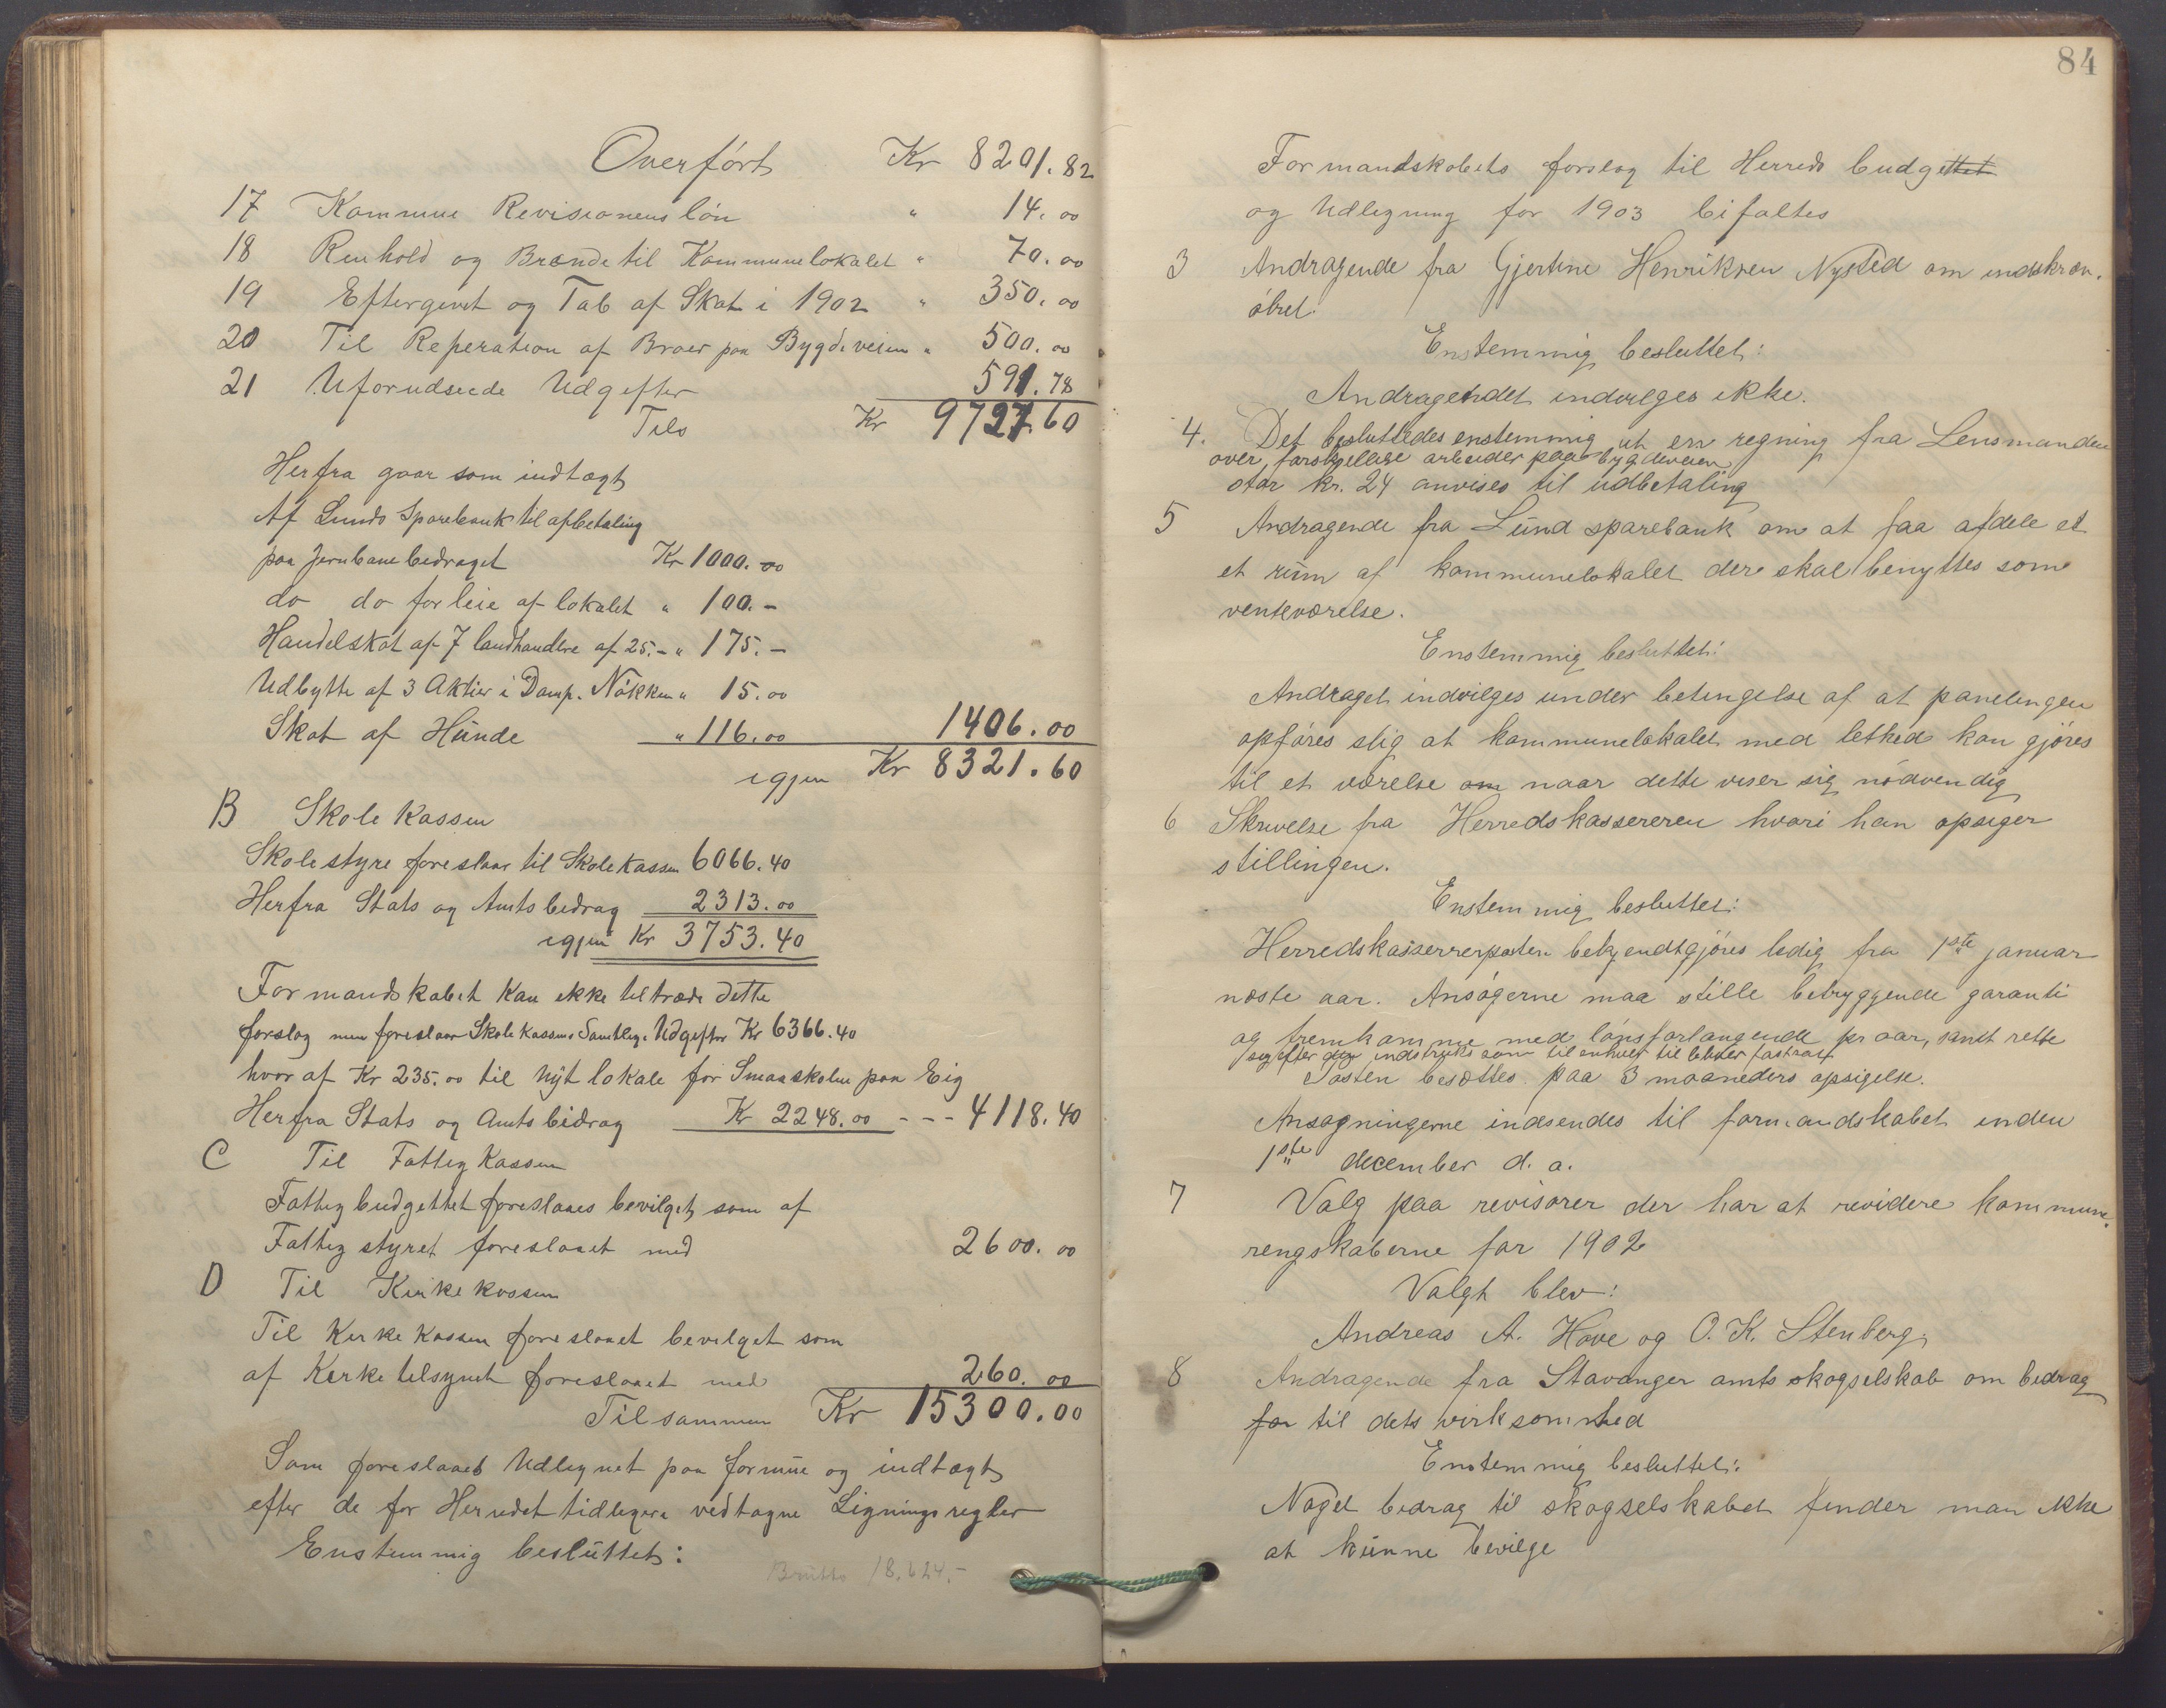 Overført Kr 8201.82
17 Kommune Revisionens løn " 14.00
18 Renhold og Brænde til Kommunelokalet " 70.00
19 Eftergivet og Tab af Skat i 1902 " 350.00
20 Til Reperation af Broer paa Bygdeveien " 500.00
21 Uforudseede Udgifter 591.78
Tils Kr 9727.60
Herfra gaar som indtægt
Af Lunds Sparebank til afbetaling
paa Jernbanebedraget Kr 1000.00
do do for leie af lokalet " 100.-
Handelskat af 7 landhandlere af 25.- " 175.-
Udbytte af 3 Aktier i Damp. Nøkken " 15.00
Skat af Hunde " 116.00 1406.00
igjen Kr 8321.60
B Skole Kassen
Skolestyre foreslaar til Skolekassen 6066.40
Herfra Stats og Amts bedrag 2313.00
igjen Kr 3753.40
Formandskabet Kan ikke tiltræde dette
forslag men foreslaar Skolekassens Samtlige Udgifter Kr 6366.40
hvor af Kr 235.00 til nyt lokale for Smaaskolen paa Eig
Herfra Stats og Amts bidrag Kr 2248.00 --- 4118.40
C Til Fattig Kassen
Fattigbudgettet foreslaaes bevilget som af
Fattigstyret foreslaaet med 2600.00
D Til Kirkekassen
Til Kirkekassen foreslaaet bevilget som
af Kirketilsynet foreslaaet med 260.00
Tilsammen Kr 15300.00
Som foreslaaes Udlignet paa formue og indtægt
efter de for Herredet tidligere vedtagne Ligningsregler
Enstemmig besluttet:
Brutto 18.624.-
84
Formandskabets forslag til Herreds budgettet
og Udligning for 1903 bifaltes
3 Andragende fra Gjertine Henriksen Nysted om indskræn.
øbet.
Enstemmig besluttet:
Andragendet indvilges ikke.
4. Det besluttedes enstemmig at en regning fra Lensmanden
over forskjellige arbeider paa bygdeveien
stor kr. 24 anvises til udbetaling
5 Andragende fra Lund sparebank om at faa afdele et
et rum af kommunelokalet der skal benyttes some
venteværelse.
Enstemmig besluttet:
Andraget indvilges under betingelse af at panelingen
opføres slig at kommunelokalet med lethed kan gjøres
til et værelse om naar dette viser sig nødvendig
6 Skrivelse fra Herredskassereren hvori han opsiger
stillingen.
Enstemmig besluttet:
Herredskasserrerposten bekjendtgjøres ledig fra 1ste januar
næste aar. Ansøgerne maa stille betryggende garanti
og fremkomme med lønsforlangende pr aar, samt rette
sig efter den indstruks som til enhver til bliver fastsat
Posten besættes paa 3 maaneders opsigelse.
Ansøgningerne indsendes til formandskabet inden
1ste december d. a.
7 Valg paa revisorer der har at revidere kommune.
rengskaberne for 1902
Valgt blev:
Andreas A. Hove og O. K. Stenberg.
8 Andragende fra Stavanger amts skogselskab om bedrag
for til dets virksomhed
Enstemmig besluttet:
Noget bedrag til skogselskabet finder man ikke
at kunne bevilge